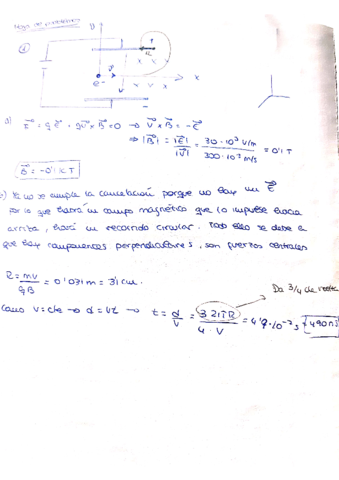 a)
B
e⁻
V
X
d) F⃗ = qE⃗ + qv⃗ × B⃗ = 0 → v⃗ × B⃗ = -E⃗
⇒ |B⃗| = |E⃗| / |v⃗| = 30·10³ V/m / 300·10³ m/s = 0'1 T
B⃗ = -0'1 k T
Ya no se cumple la cancelación porque no hay un E⃗
por lo que habrá un campo magnético que lo impulse hacia
arriba, hará un recorrido circular. Todo ello se debe a
que hay componentes perpendiculares, son fuerzas centrales
R = mv / qB = 0'031 m = 3'1 cm.
Da 3/4 de vuelta
Como v = cte → d = vt → t = d / v = 3·2πR / 4·v = 4'9·10⁻⁷ s = 490 ns